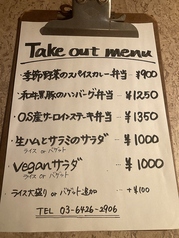 Take out menu
・季節野菜のスパイスカレー弁当 … ¥900
・和牛黒豚のハンバーグ弁当 … ¥1250
・OS産サーロインステーキ弁当 … ¥1350
・生ハムとサラミのサラダ … ¥1000
ライス or バゲット
・Veganサラダ … ¥1000
ライス or バゲット
ライス大盛り or バゲット追加 … +¥100
TEL 03-6426-2906